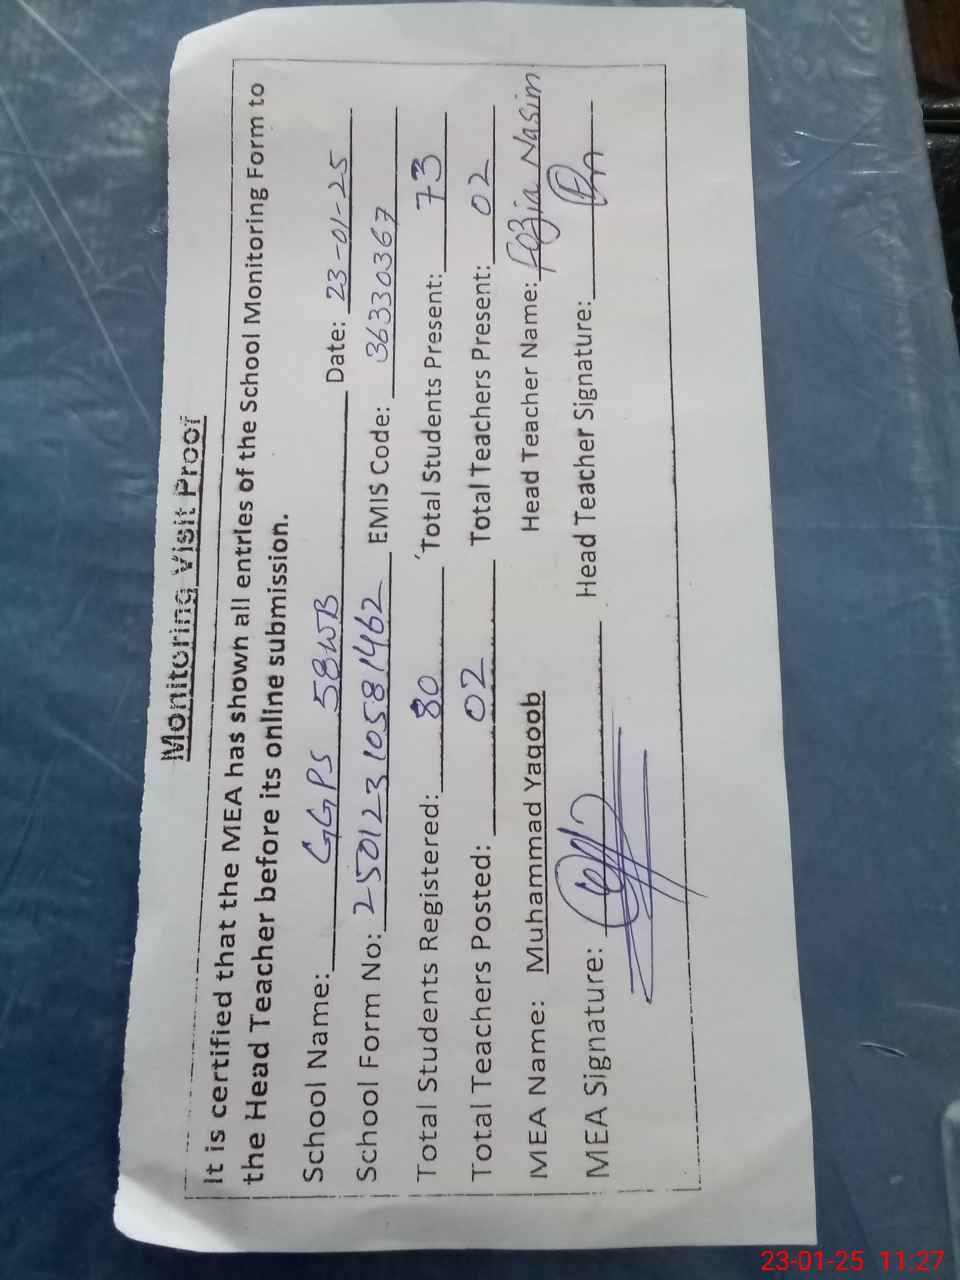 Monitoring Visit Proof
It is certified that the MEA has shown all entries of the School Monitoring Form to
the Head Teacher before its online submission.
School Name: GGPS 58WB Date: 23-01-25
School Form No: 2501231058 1462 EMIS Code: 36330367
Total Students Registered: 80 Total Students Present: 73
Total Teachers Posted: 02 Total Teachers Present: 02
MEA Name: Muhammad Yaqoob Head Teacher Name: Fozia Nasim
MEA Signature: Head Teacher Signature:
23-01-25 11:27